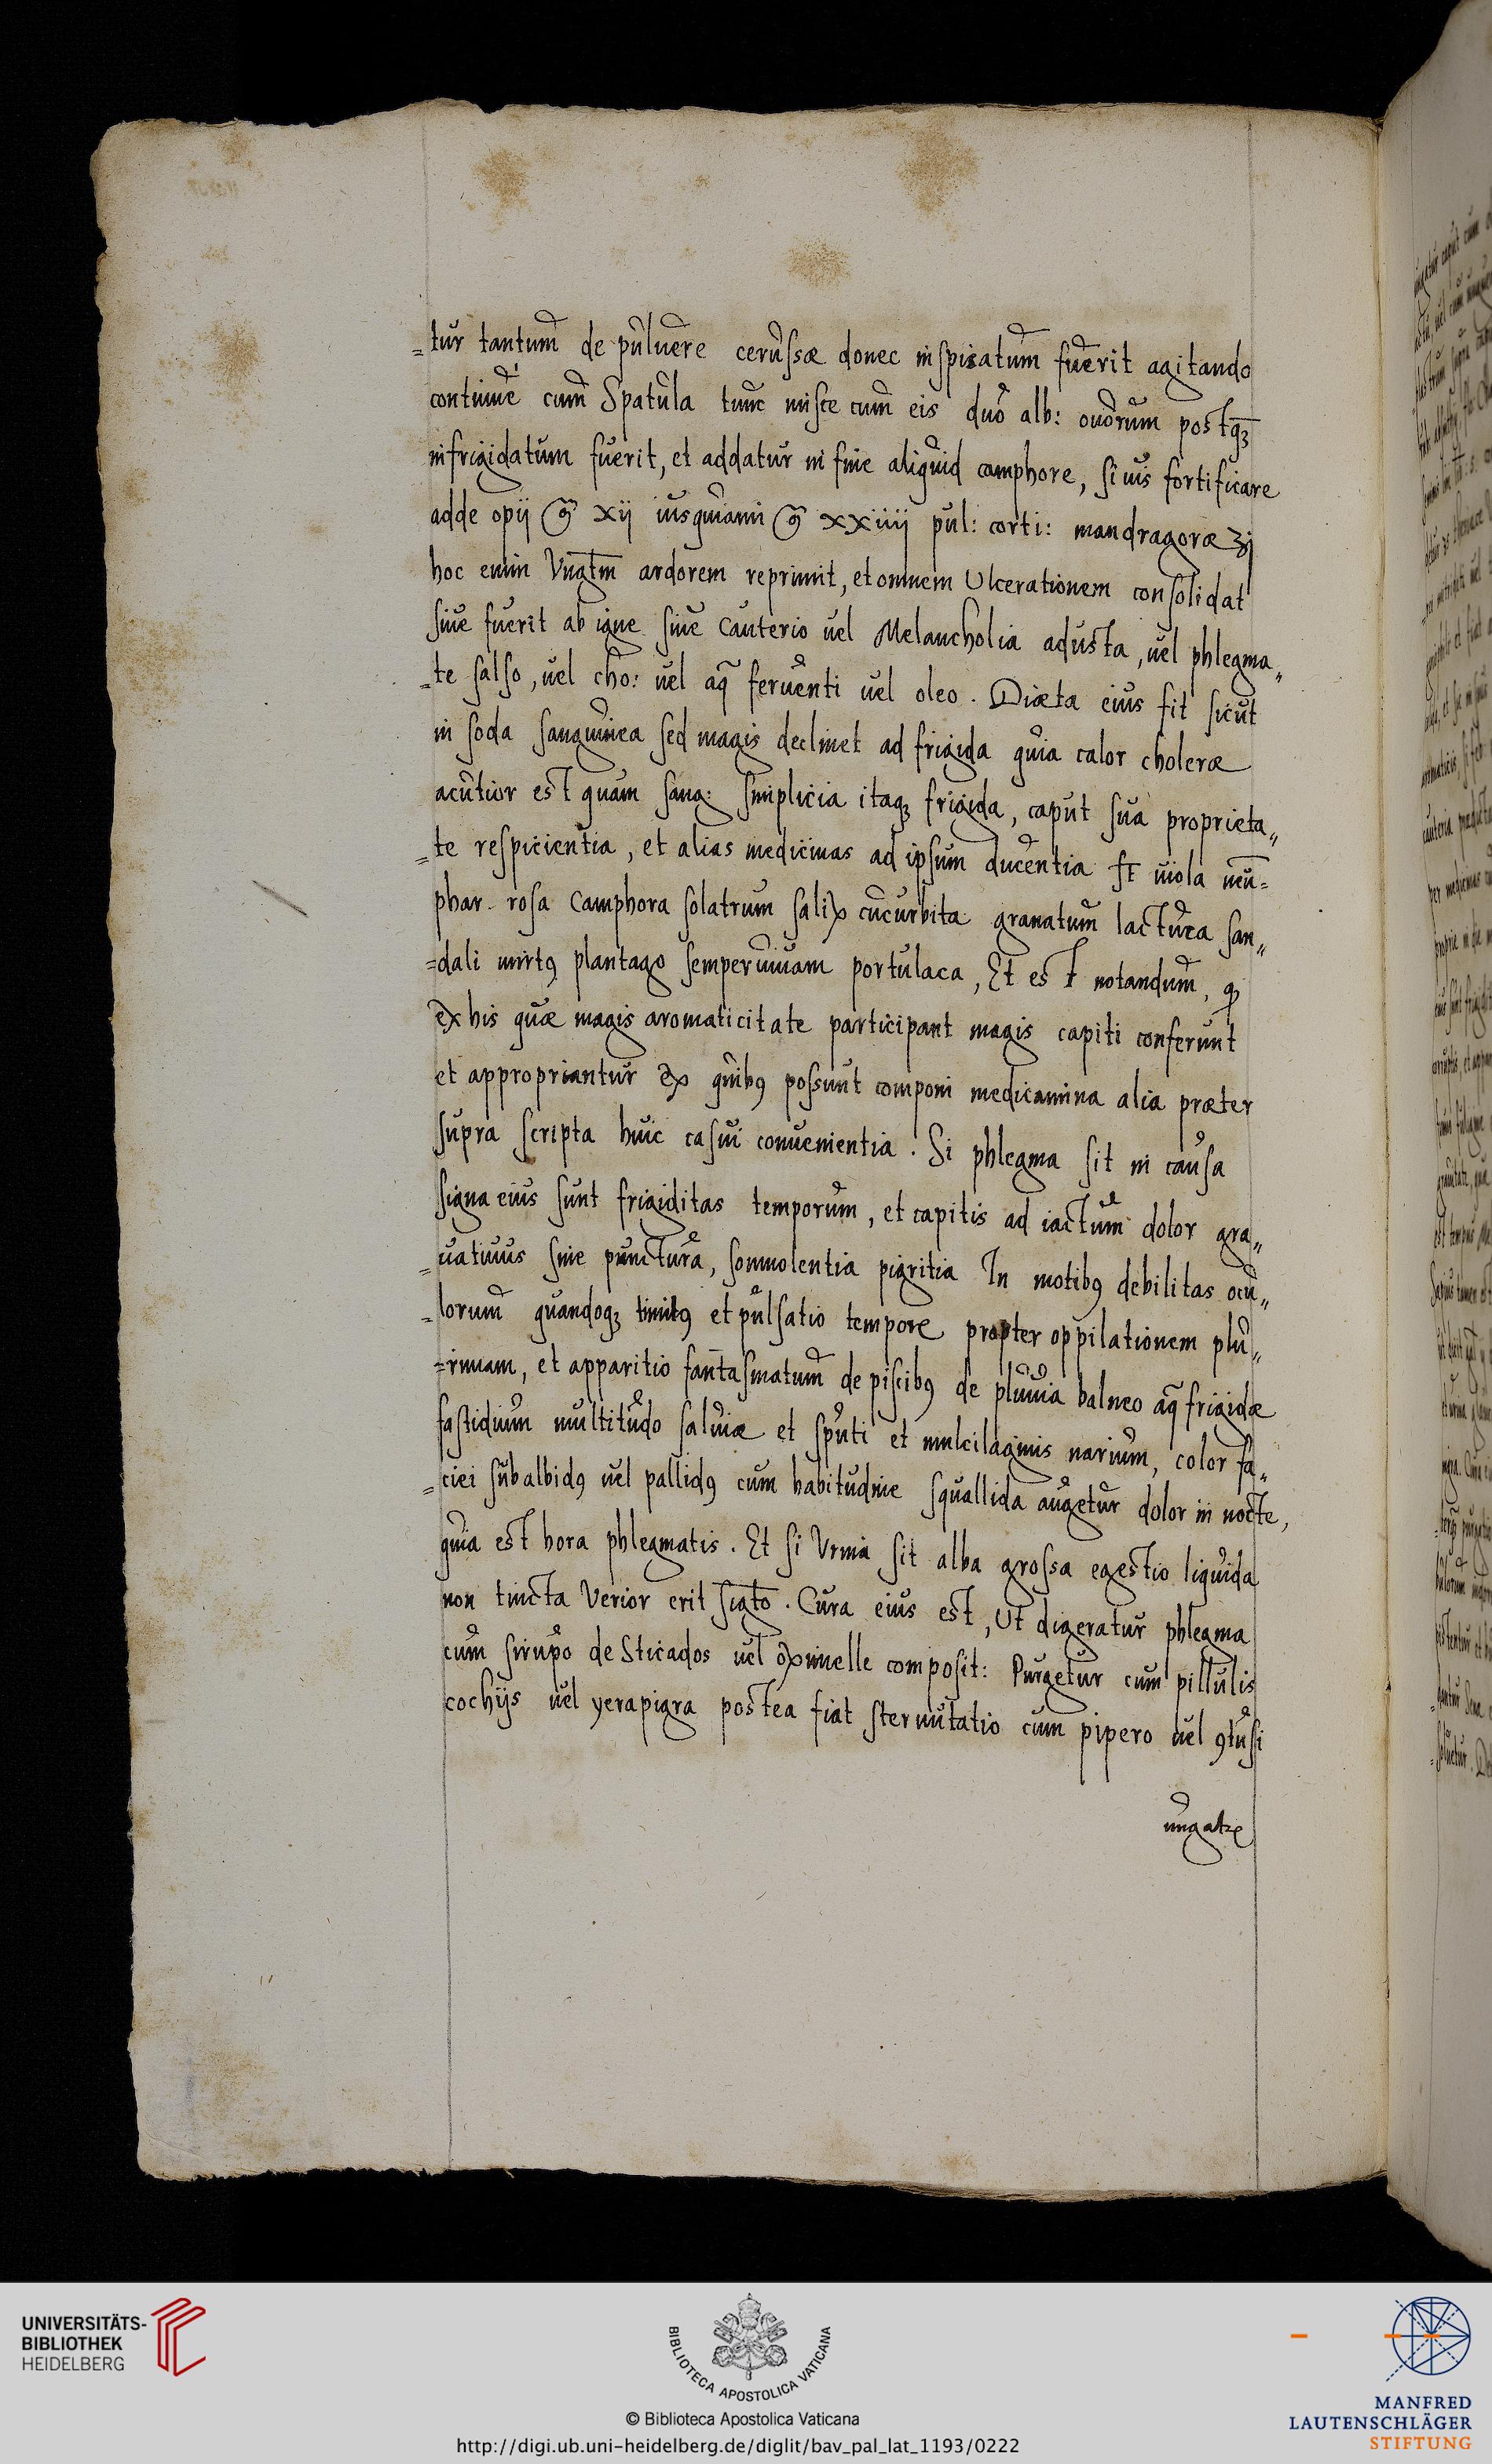 =tur tantum de puluere cerussæ donec inspisatum fuerit agitando
continué cum Spatula tunc misce cum eis duo alb: ouorum postqȝ
infrigidatum fuerit, et addatur in fine aliquid camphore, si uis fortificare
adde opij xij iusquiami xxiiij pul: corti: mandragoræ ʒj
hoc enim Vngtm̄ ardorem reprimit, et omnem Ulcerationem consolidat
siue fuerit ab igne siue Cauterio uel Melancholia adusta, uel phlegma„
=te salso, uel cho: uel aq̃ feruenti uel oleo. Diæta eius fit sicut
in soda sanguinea sed magis declinet ad frigida quia calor choleræ
acutior est quam sang: simplicia itaqȝ frigida, caput sua proprieta„
=te respicientia, et alias medicinas ad ipsum ducentia st̄ uiola neū=
phar. rosa Camphora solatrum salix cucurbita granatum lactuca san„
=dali mirtꝰ plantago semperuiuam portulaca, Et est notandum, ꝙ
ex his quæ magis aromaticitate participant magis capiti conferunt
et appropriantur ex quibꝰ possunt componi medicamina alia præter
supra scripta huic casui conuenientia. Si phlegma sit in causa
signa eius sunt frigiditas temporum, et capitis ad tactum dolor gra„
=uatiuus sine punctura, somnolentia pigritia In motibꝰ debilitas ocu„
=lorum quandoqȝ tinitꝰ et pulsatio tempore propter oppilationem plu„
=rimam, et apparitio fantasmatum de piscibꝰ de pluuia balneo aq̃ frigidæ
fastidium multitudo saliuæ et sputi et mulcilaginis narium, color fa„
=ciei subalbidꝰ uel pallidꝰ cum habitudine squallida augetur dolor in nocte,
quia est hora phlegmatis. Et si Vrina sit alba grossa egestio liquida
non tincta Verior erit sigto. Cura eius est, Ut digeratur phlegma
cum sirupo de Sticados uel oximelle composit: Purgetur cum pillulis
cochijs uel yerapigra postea fiat sternutatio cum pipero uel ꝯtusi
ungatr
UNIVERSITÄTS-
BIBLIOTHEK
HEIDELBERG
BIBLIOTECA APOSTOLICA VATICANA
© Biblioteca Apostolica Vaticana
http://digi.ub.uni-heidelberg.de/diglit/bav_pal_lat_1193/0222
MANFRED
LAUTENSCHLÄGER
STIFTUNG